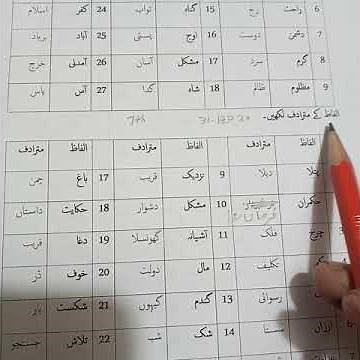 6 راحت رنج 15 گناہ ثواب 24 کفر اسلام
7 دشمن دوست 16 اوج پستی 25 آباد برباد
8 گرم سرد 17 مشکل آسان 26 آمدنی خرچ
9 مظلوم ظالم 18 شاہ گدا 27 آس یاس
الفاظ کے مترادف لکھیں۔
الفاظ مترادف الفاظ مترادف الفاظ مترادف
پتلا دبلا 9 نزدیک قریب 17 باغ چمن
حکمران 10 مشکل دشوار 18 حکایت داستان
چرخ فلک 11 آشیانہ گھونسلا 19 دغا فریب
تکلیف 12 مال دولت 20 خوف ڈر
رسوائی 13 گندم گیہوں 21 شکست ہار
ارزاں سستا 14 شک شبہ 22 تلاش جستجو